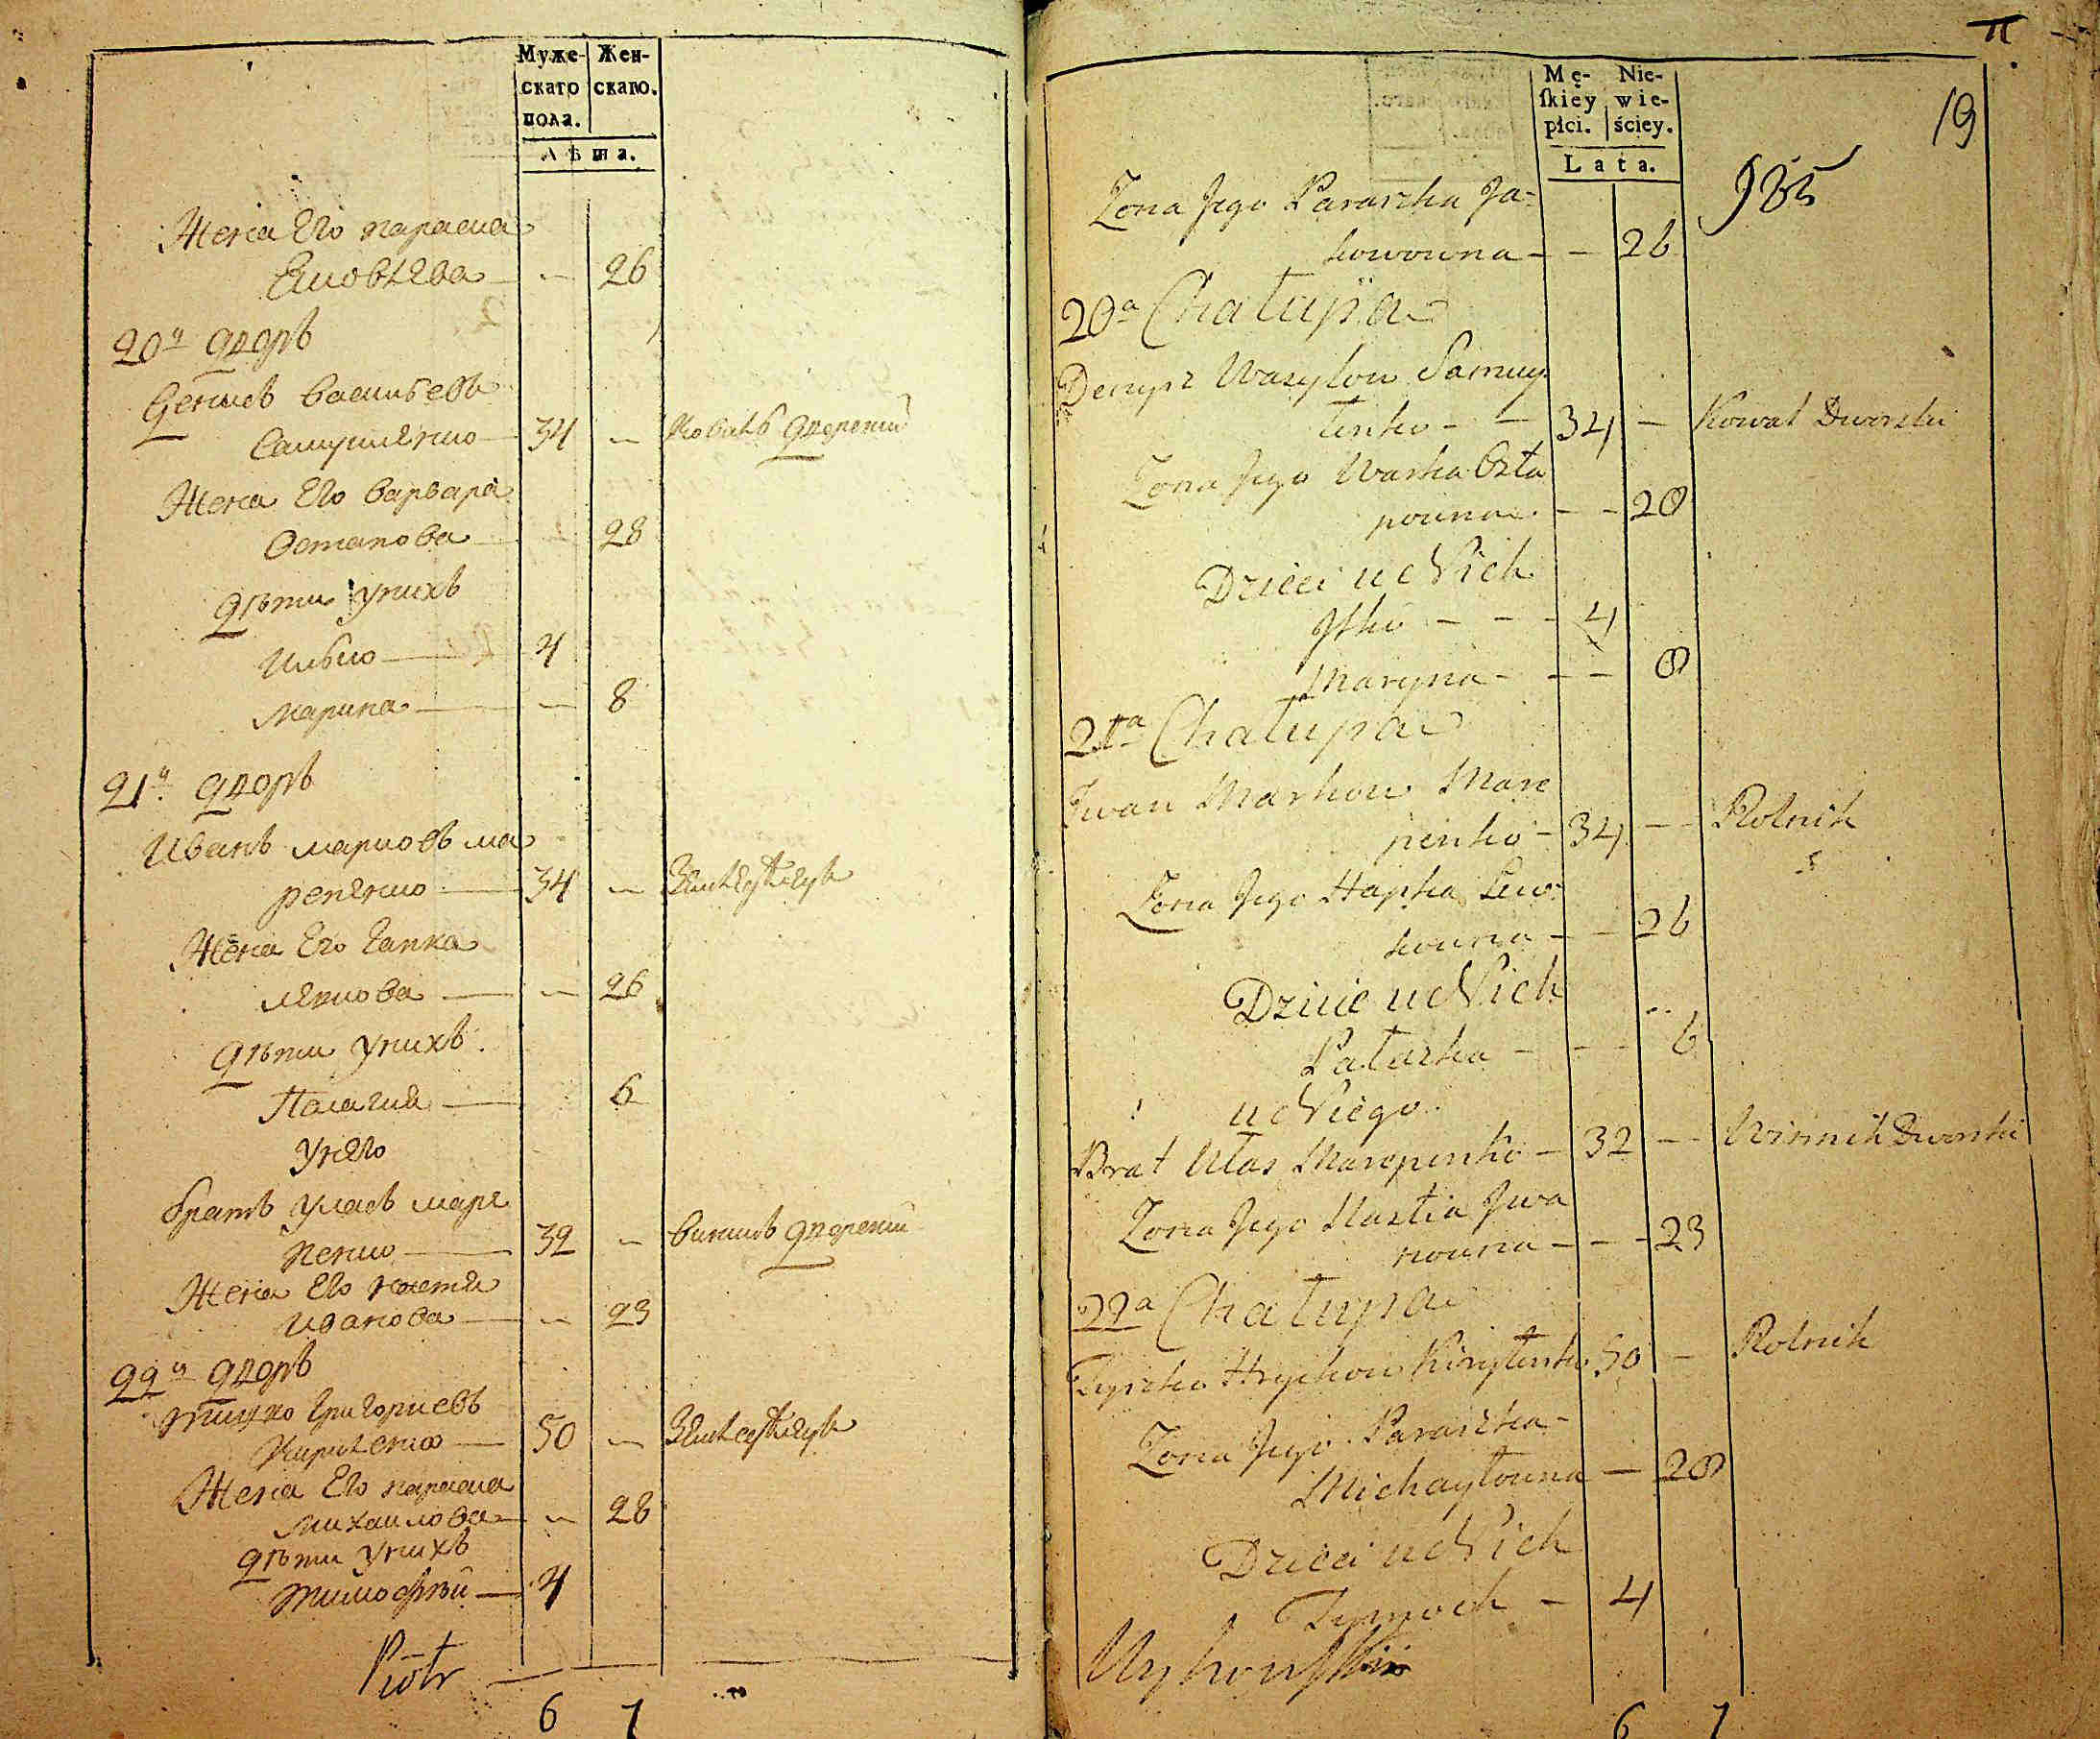 Муже-
скаго
пола.
Жен-
скаго.
Лѣта.
Жена Его параска
Яковлева — 26
20й дворъ
Денисъ Васильевъ
Самуйленко — 34 — Коваль дворскій
Жена Его Варвара
Остапова — 28
дѣти унихъ
Илько — 4
Марина — — 8
21й дворъ
Иванъ Марковъ Ма
репенко — 34 — Землед
Жена Его Гапка
Левкова — — 26
дѣти унихъ
Палагия — 6
Унего
братъ Уласъ Маре
пенко — 32 — Винникъ дворскій
Жена Его Настя
Иванова — — 23
22й дворъ
Тишко Григориевъ
Кириленко — 50 —
Жена Его параска
Михайлова — — 28
дѣти унихъ
Тимофѣй — 4
Piotr —
6 7
π
19
985
Mę-
ſkiéy
płci.
Nie-
wie-
ściey.
Lata.
Zona Jego Paraszka Ja-
kowowna - — 26
20a Chałupa
Denys Wasylow Samuy
łenko - — 34 — Kowal Dworski
Zona Jego Warka Osta
powna - - — 28
Dzieci u Nich
Ilko — — - 4
Maryna - - — 8
21a Chałupa
Iwan Markow Mare
penko — 34 — Rolnik
Zona Jego Hapka Lew-
kowna — — 26
Dzieci u Nich
Pałaszka — - — 6
u Niego
Brat Ułas Marepenko — 32 — Winnik Dworski
Zona Jego Nastia Iwa
nowna — - — 23
22a Chałupa
Tyszko Hryhow Kiryłenko 50 — Rolnik
Zona Jego Paraszka
Michayłowna — 28
Dzieci u Nich
Tymoch — 4
6 7